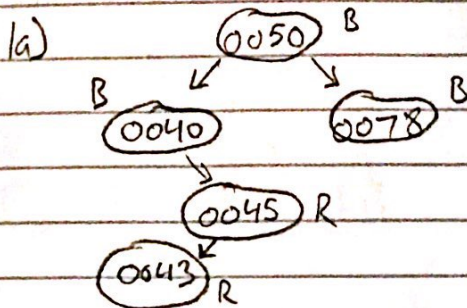 1a)
0050 B
B 0040
0078 B
0045 R
0043 R